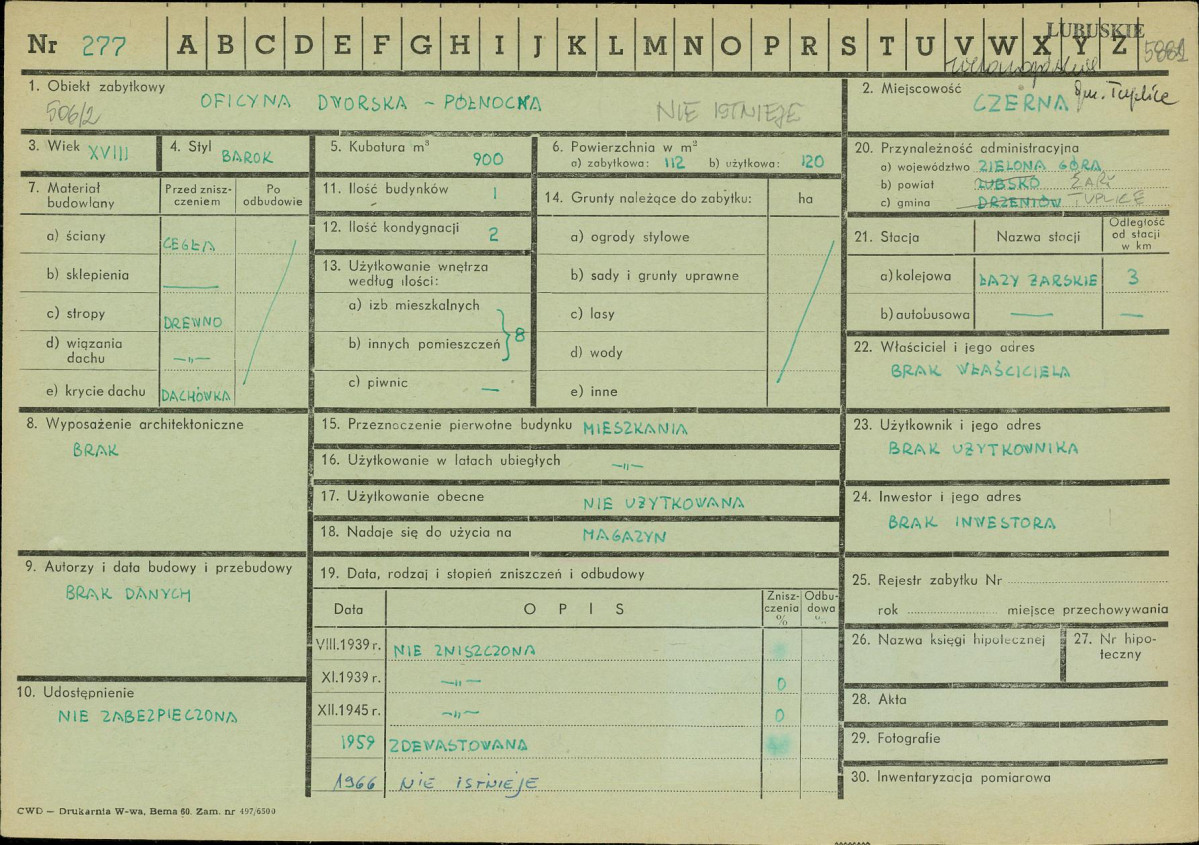 LUBUSKIE
Nr 277 A B C D E F G H I J K L M N O P R S T U V W X Y Z 5881
1. Obiekt zabytkowy
OFICYNA DWORSKA – PÓŁNOCNA
506/2
NIE ISTNIEJE
2. Miejscowość
CZERNA gm. Tuplice
3. Wiek XVIII
4. Styl BAROK
5. Kubatura m³
900
6. Powierzchnia w m²
a) zabytkowa: 112 b) użytkowa: 120
20. Przynależność administracyjna
a) województwo ZIELONA GÓRA
b) powiat LUBSKO ŻARY
c) gmina DRZENIÓW TUPLICE
7. Materiał budowlany
Przed znisz-
czeniem
Po
odbudowie
a) ściany CEGŁA
b) sklepienia —
c) stropy DREWNO
d) wiązania
dachu —„—
e) krycie dachu DACHÓWKA
11. Ilość budynków 1
12. Ilość kondygnacji 2
13. Użytkowanie wnętrza
według ilości:
a) izb mieszkalnych
b) innych pomieszczeń } 8
c) piwnic —
14. Grunty należące do zabytku: ha
a) ogrody stylowe
b) sady i grunty uprawne
c) lasy
d) wody
e) inne
21. Stacja Nazwa stacji
Odległość
od stacji
w km
a) kolejowa ŁAZY ŻARSKIE 3
b) autobusowa — —
22. Właściciel i jego adres
BRAK WŁAŚCICIELA
8. Wyposażenie architektoniczne
BRAK
15. Przeznaczenie pierwotne budynku MIESZKANIA
16. Użytkowanie w latach ubiegłych —„—
17. Użytkowanie obecne NIE UŻYTKOWANA
18. Nadaje się do użycia na MAGAZYN
23. Użytkownik i jego adres
BRAK UŻYTKOWNIKA
24. Inwestor i jego adres
BRAK INWESTORA
9. Autorzy i data budowy i przebudowy
BRAK DANYCH
10. Udostępnienie
NIE ZABEZPIECZONA
19. Data, rodzaj i stopień zniszczeń i odbudowy
Data OPIS
Znisz-
czenia
%
Odbu-
dowa
%
VIII.1939 r. NIE ZNISZCZONA
XI.1939 r. —„— 0
XII.1945 r. —„— 0
1959 ZDEWASTOWANA
1966 NIE ISTNIEJE
25. Rejestr zabytku Nr
rok miejsce przechowywania
26. Nazwa księgi hipotecznej
27. Nr hipo-
teczny
28. Akta
29. Fotografie
30. Inwentaryzacja pomiarowa
CWD – Drukarnia W-wa, Bema 60. Zam. nr 497/6500